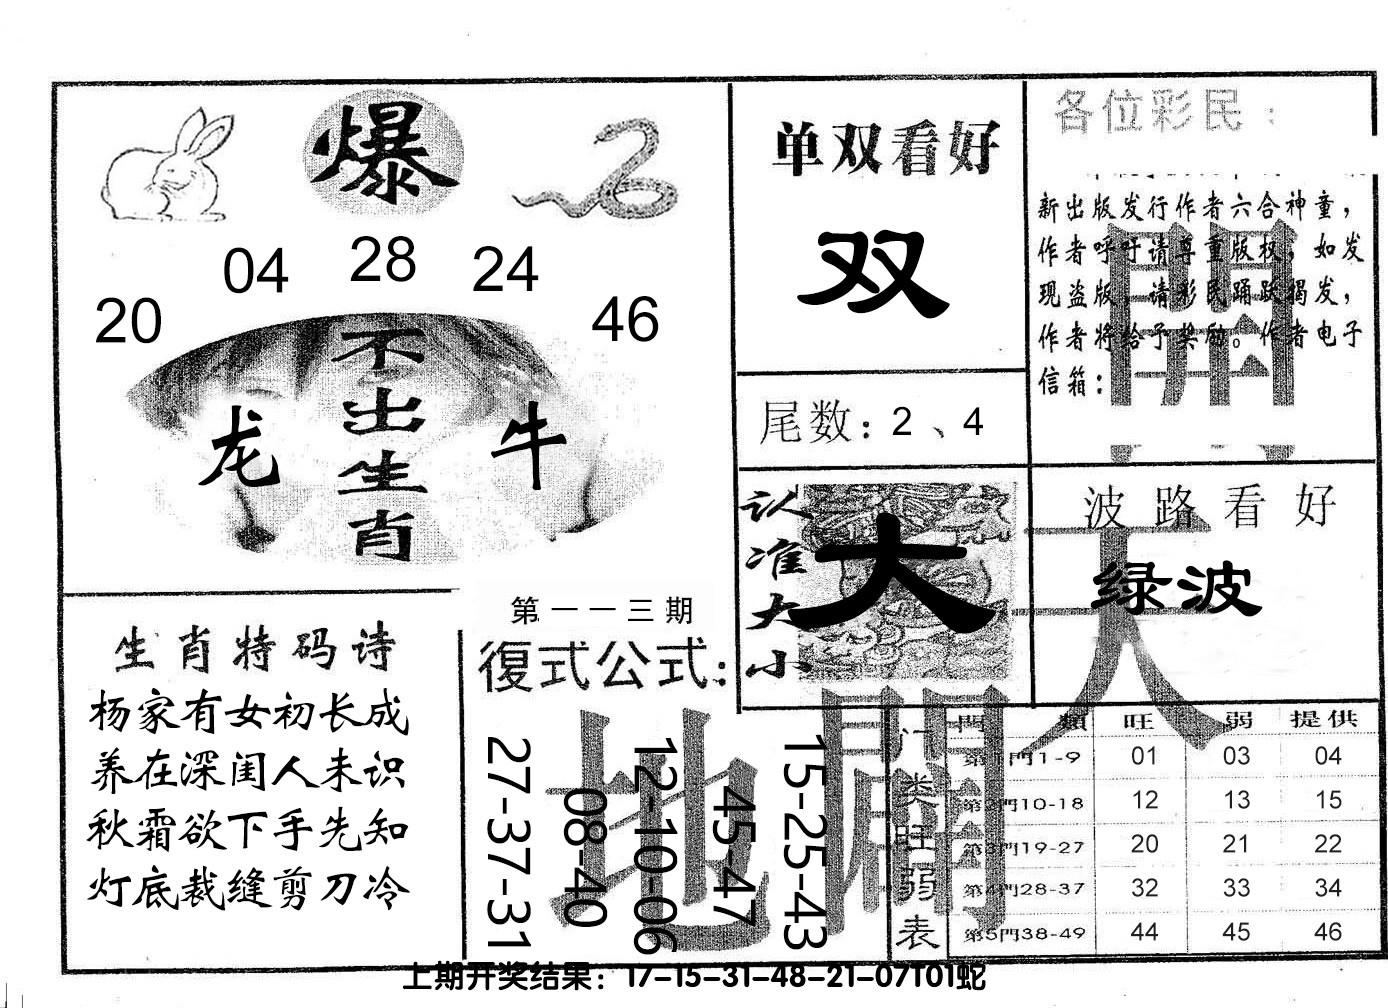 爆
20 04 28 24 46
不出生肖
龙 牛
生肖特码诗
杨家有女初长成
养在深闺人未识
秋霜欲下手先知
灯底裁缝剪刀冷
第一一三期
復式公式：
27-37-31
08-40
12-10-06
45-47
15-25-43
单双看好
双
尾数：2、4
认准大小
大
各位彩民：
新出版发行作者六合神童，
作者呼吁请尊重版权，如发
现盗版，请彩民踊跃揭发，
作者将给予奖励。作者电子
信箱：
波路看好
绿波
天
地
開
開
门类旺弱表
門類 旺 弱 提供
第1門1-9 01 03 04
第2門10-18 12 13 15
第3門19-27 20 21 22
第4門28-37 32 33 34
第5門38-49 44 45 46
上期开奖结果：17-15-31-48-21-07T01蛇